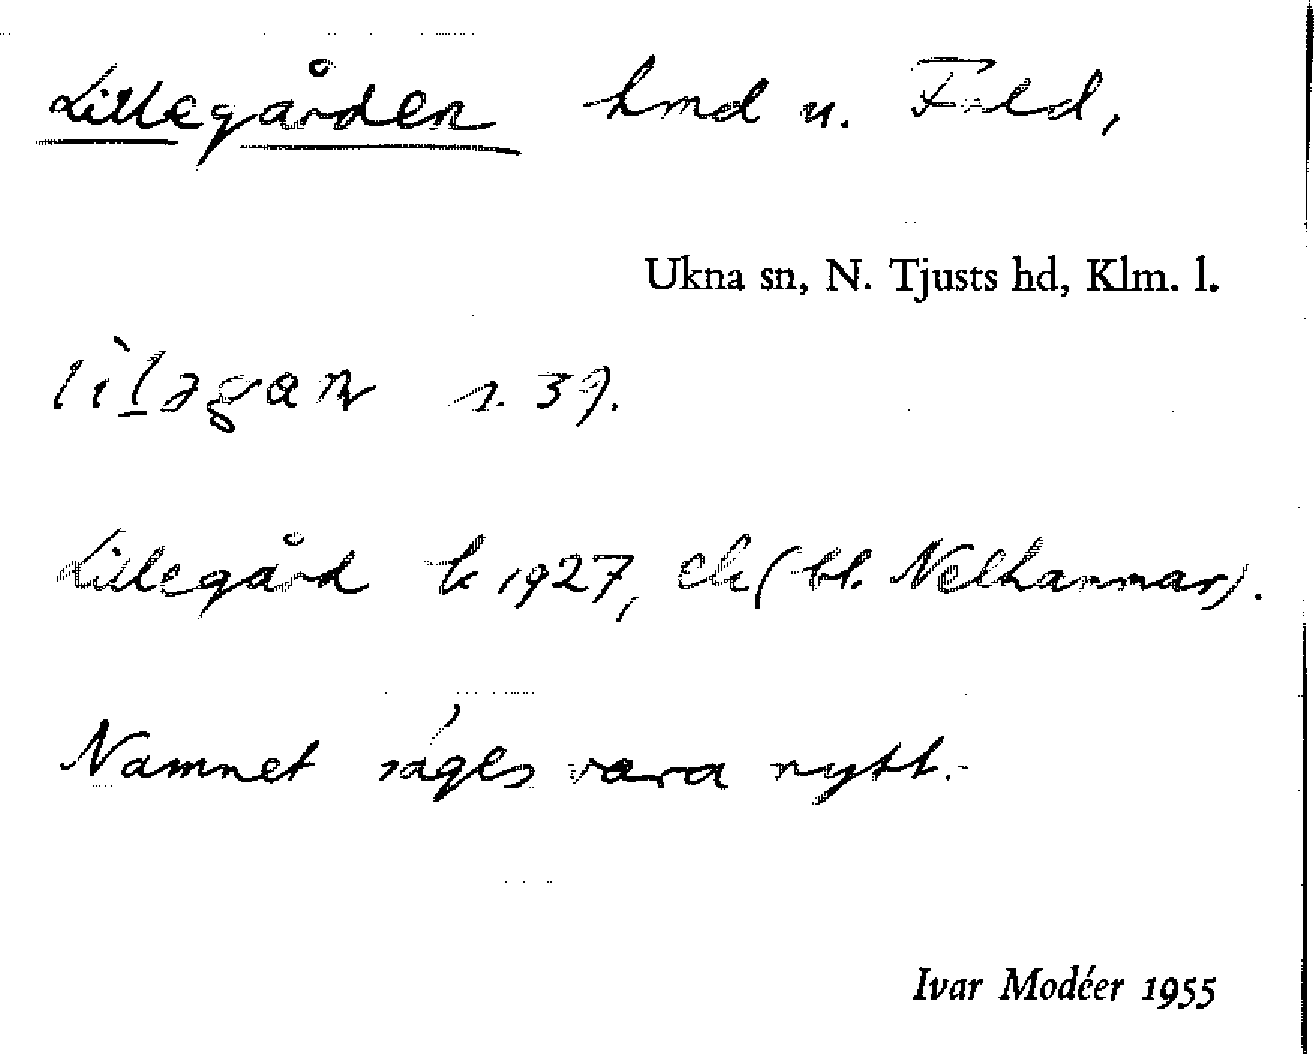 Lillegården hmd u. Fröled,
Ukna sn, N. Tjusts hd, Klm. l.
s. 39.
Lillegård k 1927, ch (bl. Nelhammar).
Namnet säges vara nytt.
Ivar Modéer 1955